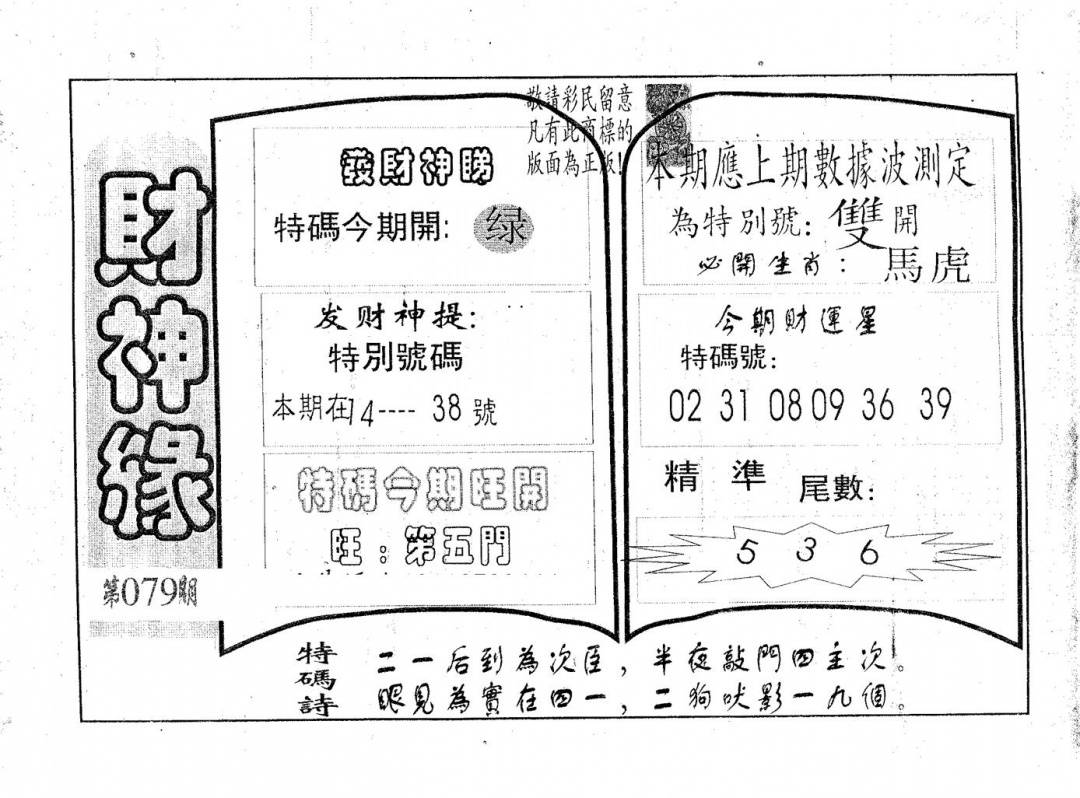 財神緣
第079期
敬請彩民留意
凡有此商標的
版面為正版!
發財神睇
特碼今期開: 绿
发财神提:
特別號碼
本期在14---- 38 號
特碼今期旺開
旺:第五門
本期應上期數據波測定
為特別號: 雙 開
必開生肖: 馬虎
今期財運星
特碼號:
02 31 08 09 36 39
精準 尾數:
5 3 6
特碼詩
二一后到為次臣,半夜敲門四主次。
眼見為實在四一,二狗吠影一九個。